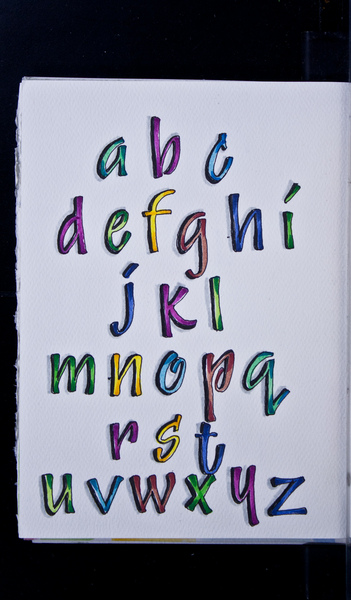 abc
defghi
jkl
mnopq
rst
uvwxyz